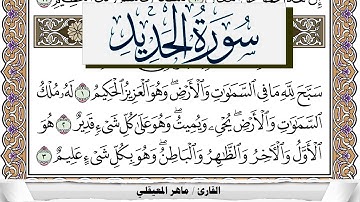 سورة الحديد
سَبَّحَ لِلَّهِ مَا فِي السَّمَٰوَٰتِ وَالْأَرْضِ ۖ وَهُوَ الْعَزِيزُ الْحَكِيمُ ١ لَهُۥ مُلْكُ
السَّمَٰوَٰتِ وَالْأَرْضِ ۖ يُحْيِۦ وَيُمِيتُ ۖ وَهُوَ عَلَىٰ كُلِّ شَيْءٍ قَدِيرٌ ٢ هُوَ
الْأَوَّلُ وَالْآخِرُ وَالظَّٰهِرُ وَالْبَاطِنُ ۖ وَهُوَ بِكُلِّ شَيْءٍ عَلِيمٌ ٣
القارئ / ماهر المعيقلي